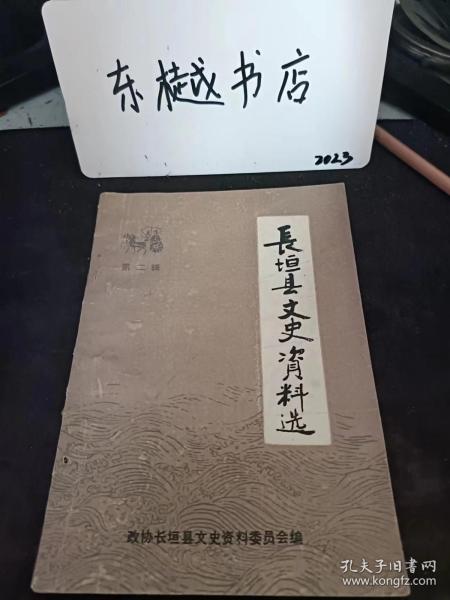 东樾书店
2023
第二辑
長垣县文史资料选
政协长垣县文史资料委员会编
孔夫子旧书网
www.kongfz.com